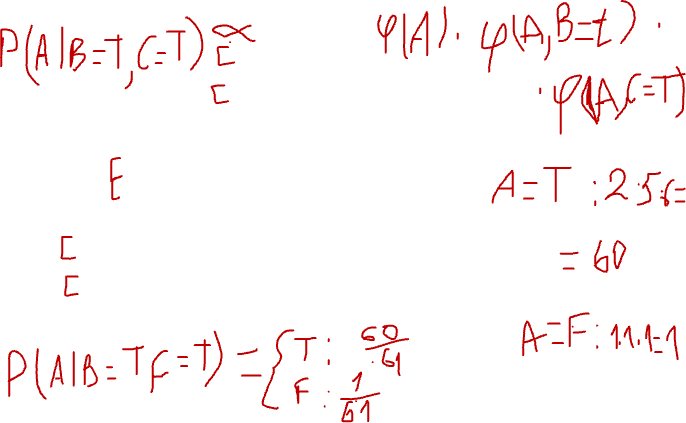 P(A|B=T,C=T) ∝ φ(A). φ(A,B=t) .
E
E
. φ(A,C=T)
E
A=T : 2.5.6=
= 60
E
E
A=F: 1.1.1=1
P(A|B=T,C=T) = { T : 60/61
F : 1/61